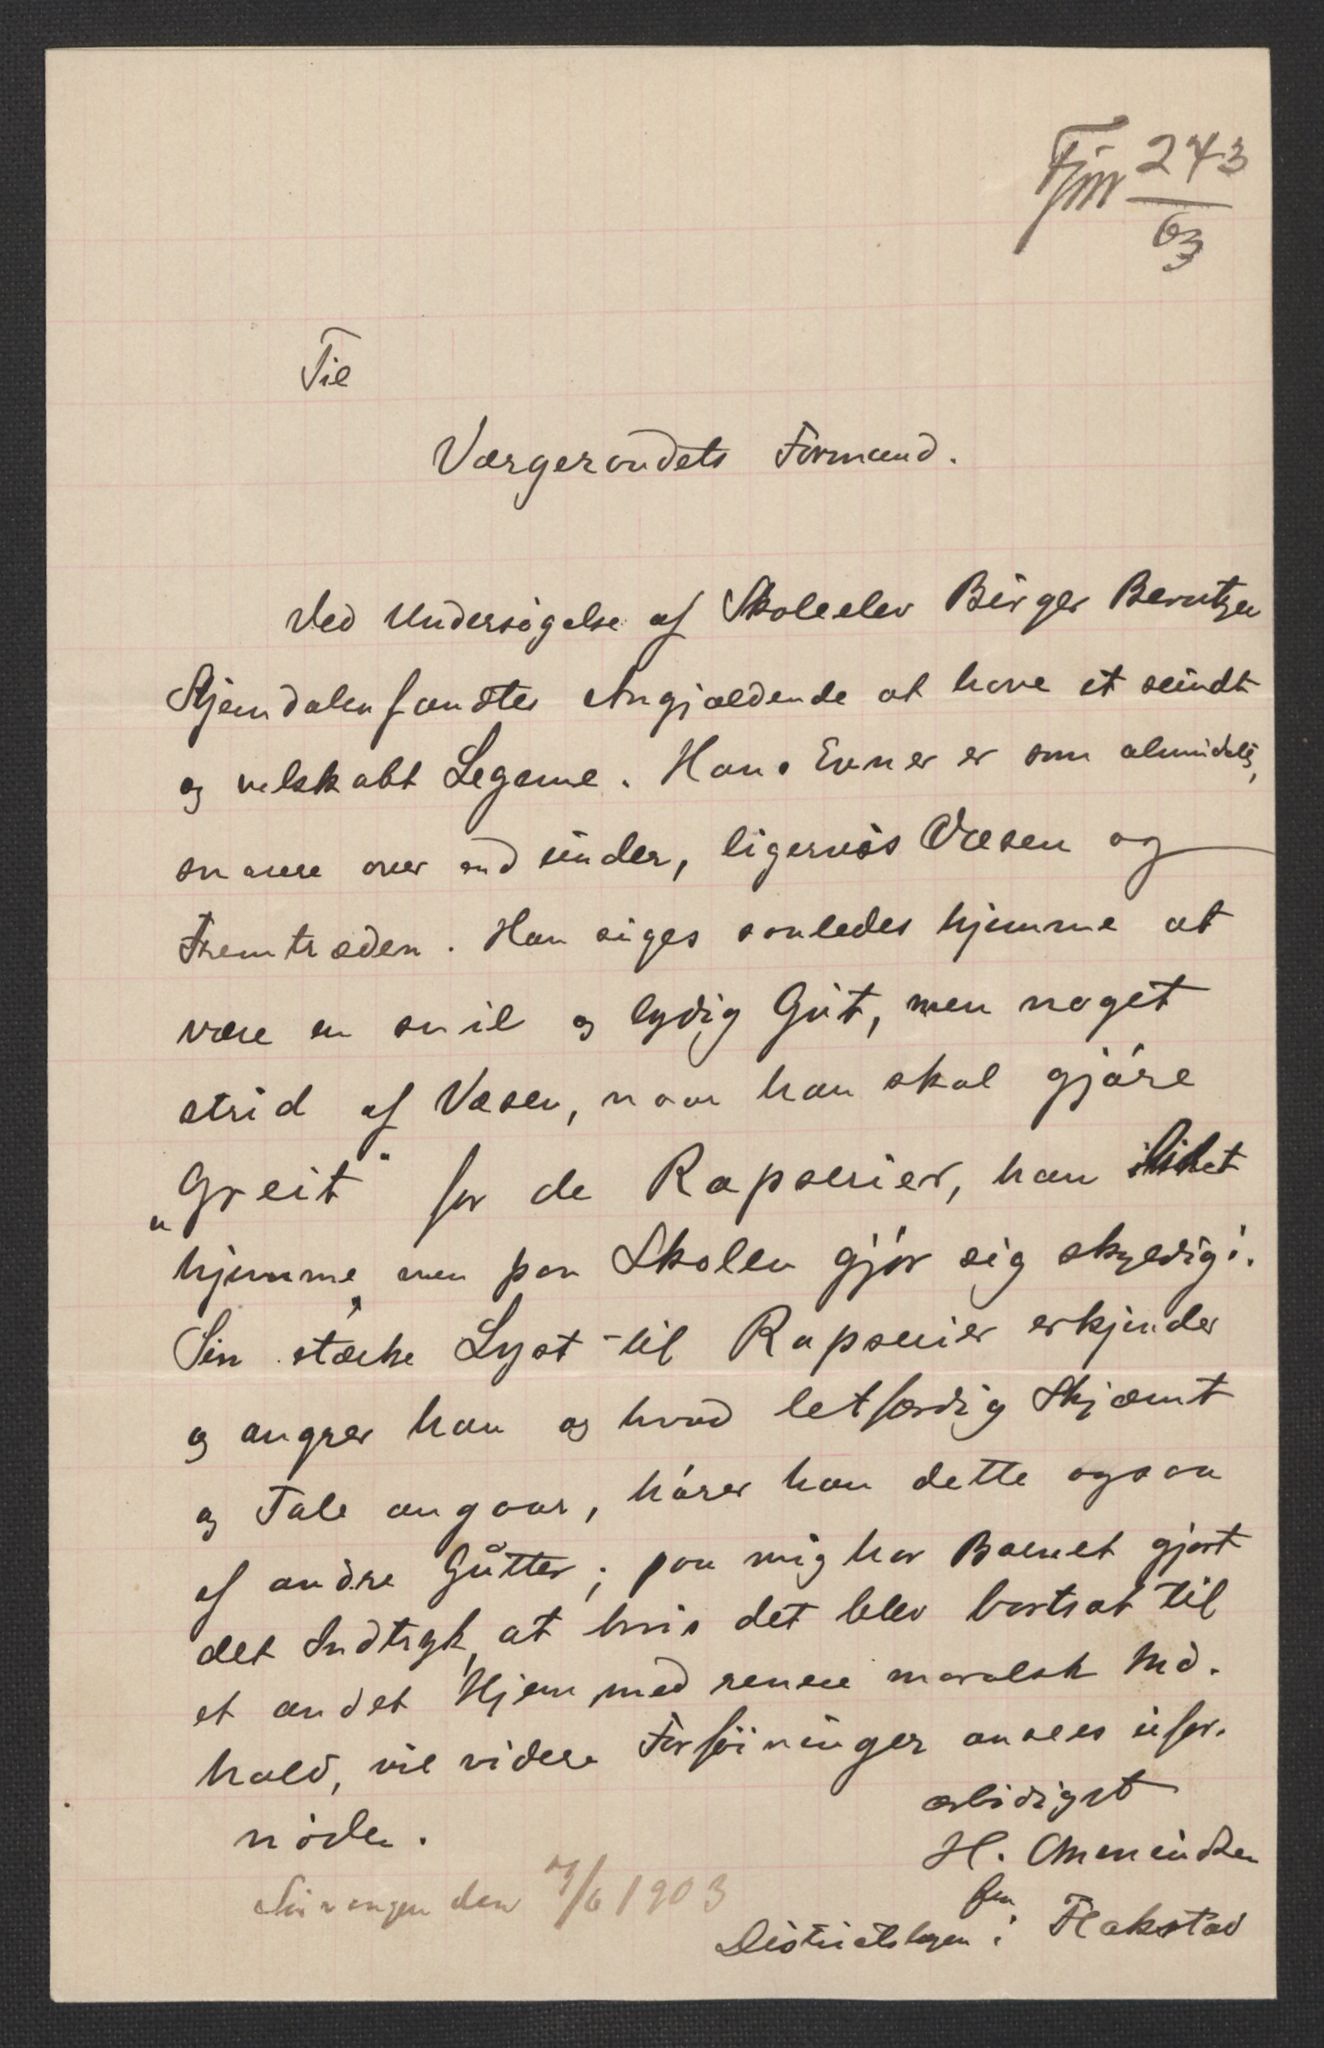 Fjm 243
03
Til
Værgeraadets Formand.
Ved Undersøgelse af Skoleelev Birger Berntzen
Stjerndalen fandtes Angjældende at have et sundt
og velskabt Legeme. Hans Evner er som almindelig,
snarere over end under, ligervis Væsen og
Fremtræden. Han siges saaledes hjemme at
være en snil og lydig Gut, men noget
strid af Væsen, naar han skal gjøre
„Greit" for de Rapserier, han
hjemme, men paa Skolen gjør sig skyldig i.
Sin stærke Lyst til Rapserier erkjender
og angrer han og hvad letfærdig Skjæmt
og Tale angaar, hører han dette ogsaa
af andre Gutter; paa mig har Barnet gjort
det Indtryk, at hvis det blev bortsat til
et andet Hjem med renere moralsk Ind-
hold, vil videre Forføininger ansees ufor-
nøden.
ærbødigst
H.
fra
Distriktslægen i Flakstad
den 7/6 1903